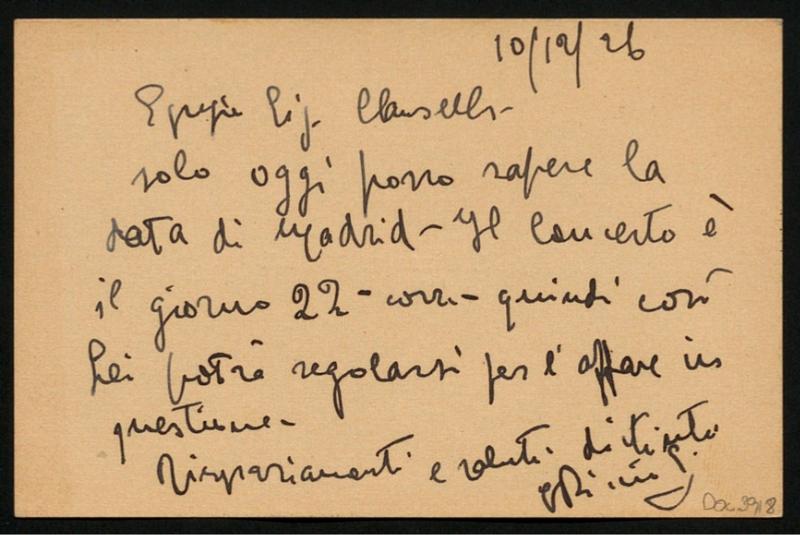 10/12/26
Egregio Sig. Clausells-
solo oggi posso sapere la
data di Madrid - Il concerto è
il giorno 22 - corr. - quindi così
Lei potrà regolarsi per l'affare in
questione -
Ringraziamenti e saluti distinti
Doc 39/18